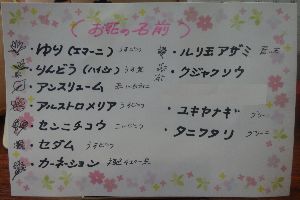 (お花の名前)
・ゆり(エマーニ) うすピンク
・りんどう(ハイジ)
・アンスリューム
・アルストロメリア うすピンク
・センニチコウ こいピンク
・セダム うすピンク
・カーネーション
・ルリ玉アザミ
・クジャクソウ
・ユキヤナギ グリーン
・タニワタリ グリーン